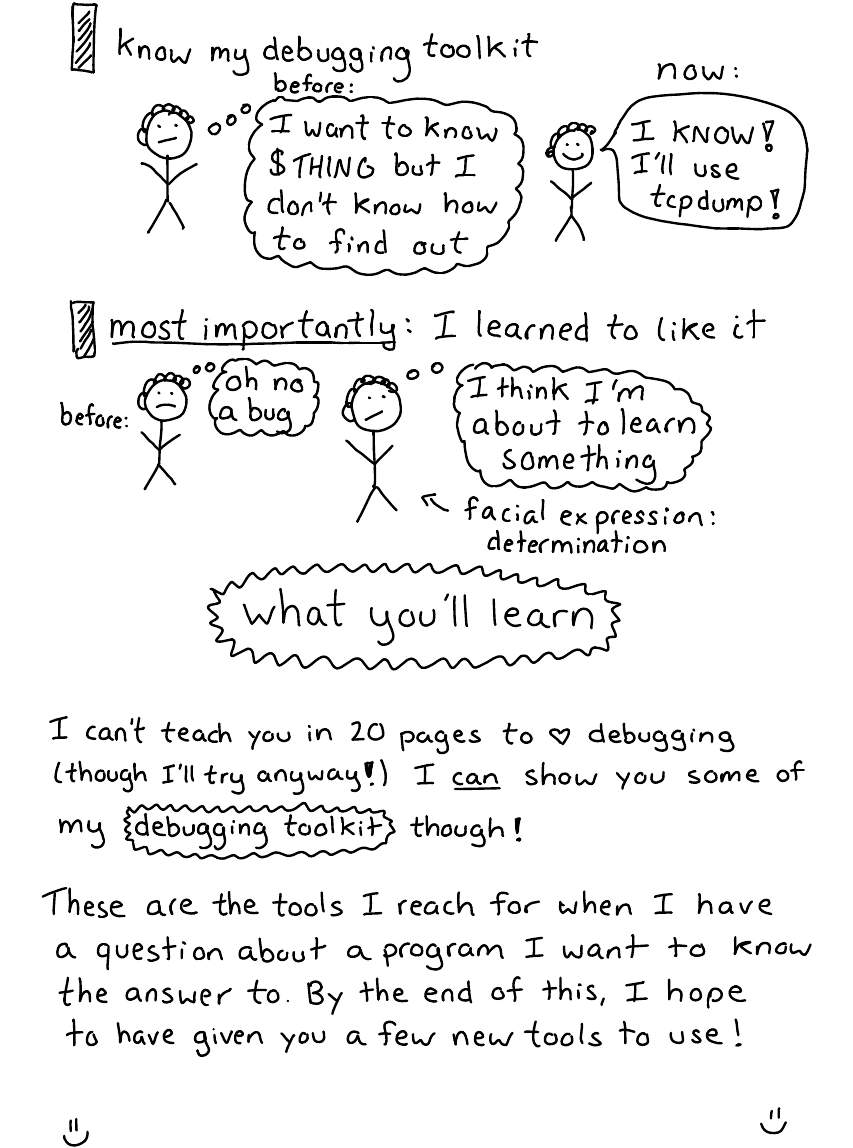 know my debugging toolkit
before:
I want to know
$THING but I
don't know how
to find out
now:
I KNOW!
I'll use
tcpdump!
most importantly: I learned to like it
before:
oh no
a bug
I think I'm
about to learn
something
facial expression:
determination
what you'll learn
I can't teach you in 20 pages to ♡ debugging
(though I'll try anyway!) I can show you some of
my debugging toolkit though!
These are the tools I reach for when I have
a question about a program I want to know
the answer to. By the end of this, I hope
to have given you a few new tools to use!